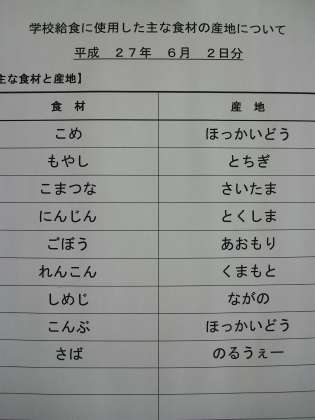 学校給食に使用した主な食材の産地について
平成　２７年　６月　２日分
主な食材と産地】
食　材　産　地
こめ　ほっかいどう
もやし　とちぎ
こまつな　さいたま
にんじん　とくしま
ごぼう　あおもり
れんこん　くまもと
しめじ　ながの
こんぶ　ほっかいどう
さば　のるうぇー